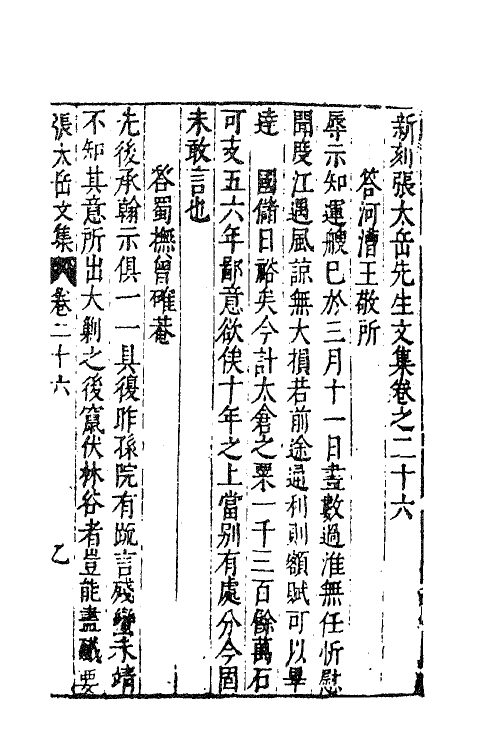 新刻張太岳先生文集卷之二十六
答河漕王敬所
辱示知運艘已於三月十一日盡數過淮無任忻慰
聞度江遇風諒無大損若前途通利則額賦可以畢
達　國儲日裕矣今計太倉之粟一千三百餘萬石
可支五六年鄙意欲俟十年之上當別有處分今固
未敢言也
答蜀撫曾確菴
先後承翰示俱一一具復昨孫院有疏言殘蠻未靖
不知其意所出大剿之後竄伏林谷者豈能盡殱要
張太岳文集
卷二十六
乙